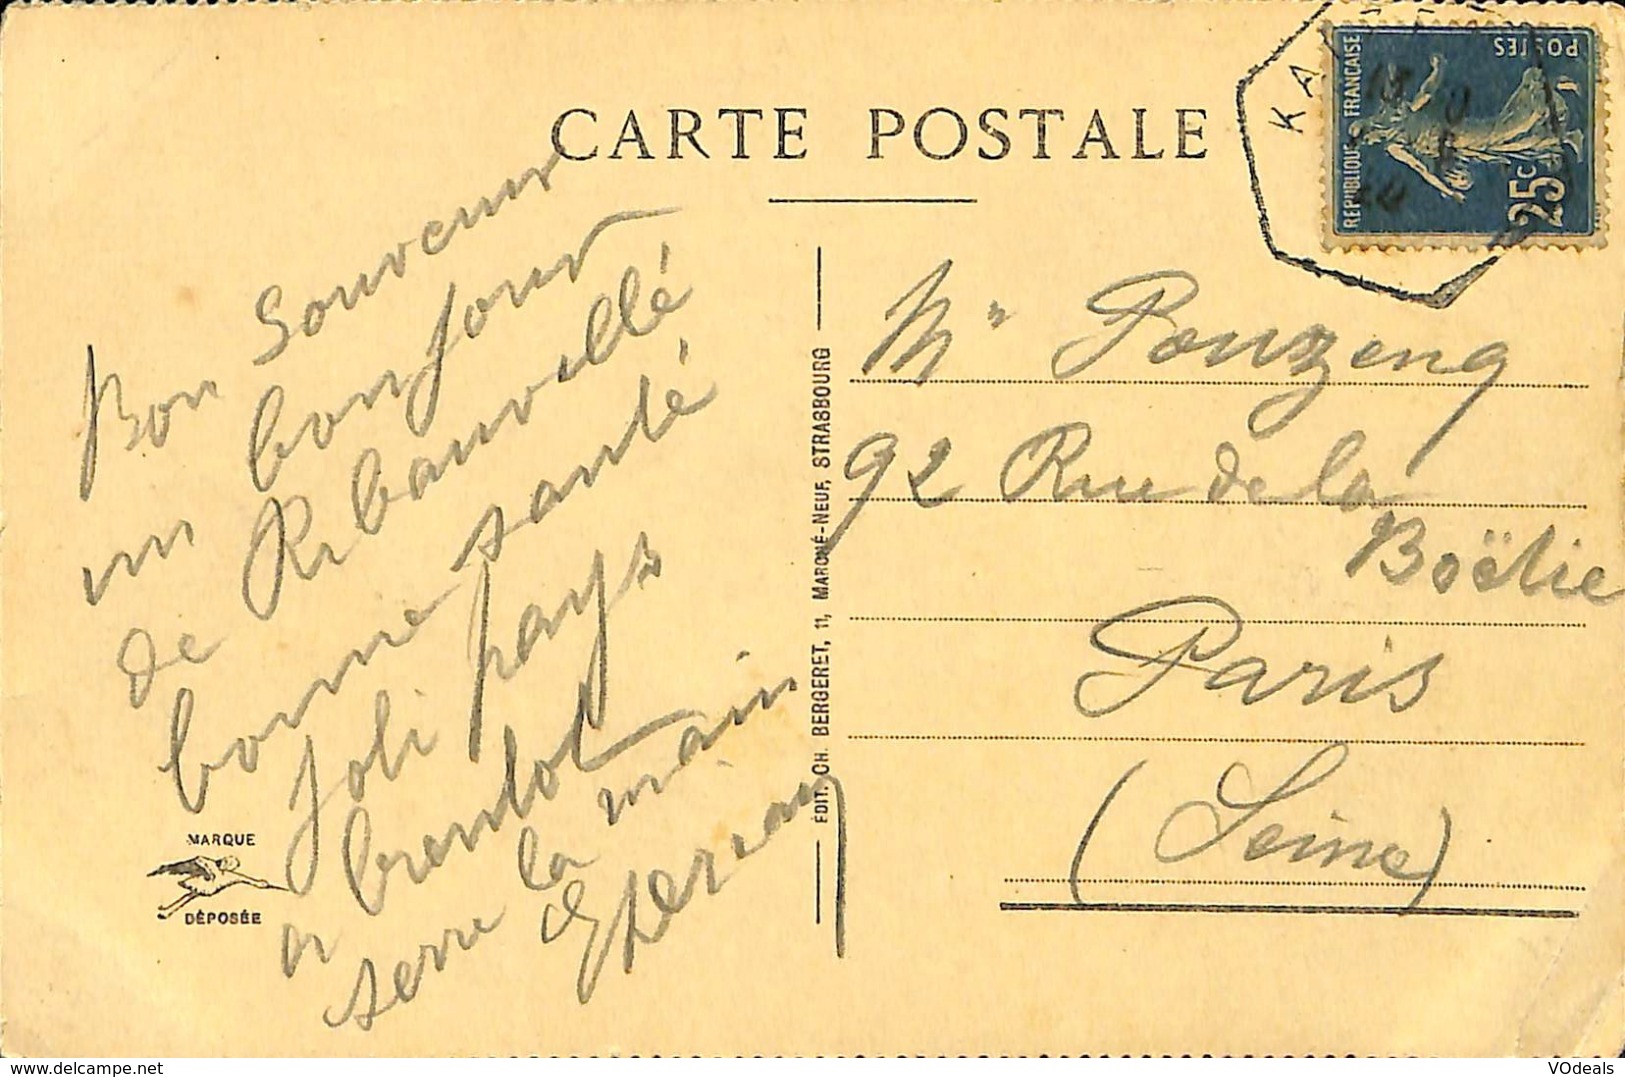 CARTE POSTALE
KA
RÉPUBLIQUE FRANÇAISE
POSTES
25c
Bon Souvenir
un bonjour
de Ribauvillé
bonne santé
Joli pays
a bientot
serre la main
ÉDIT. CH. BERGERET, 11, MAROHÉ-NEUF, STRASBOURG
Mr Pouzeng
92 Rue de la
Boëtie
Paris
(Seine)
MARQUE
DÉPOSÉE
www.delcampe.net
VOdeals